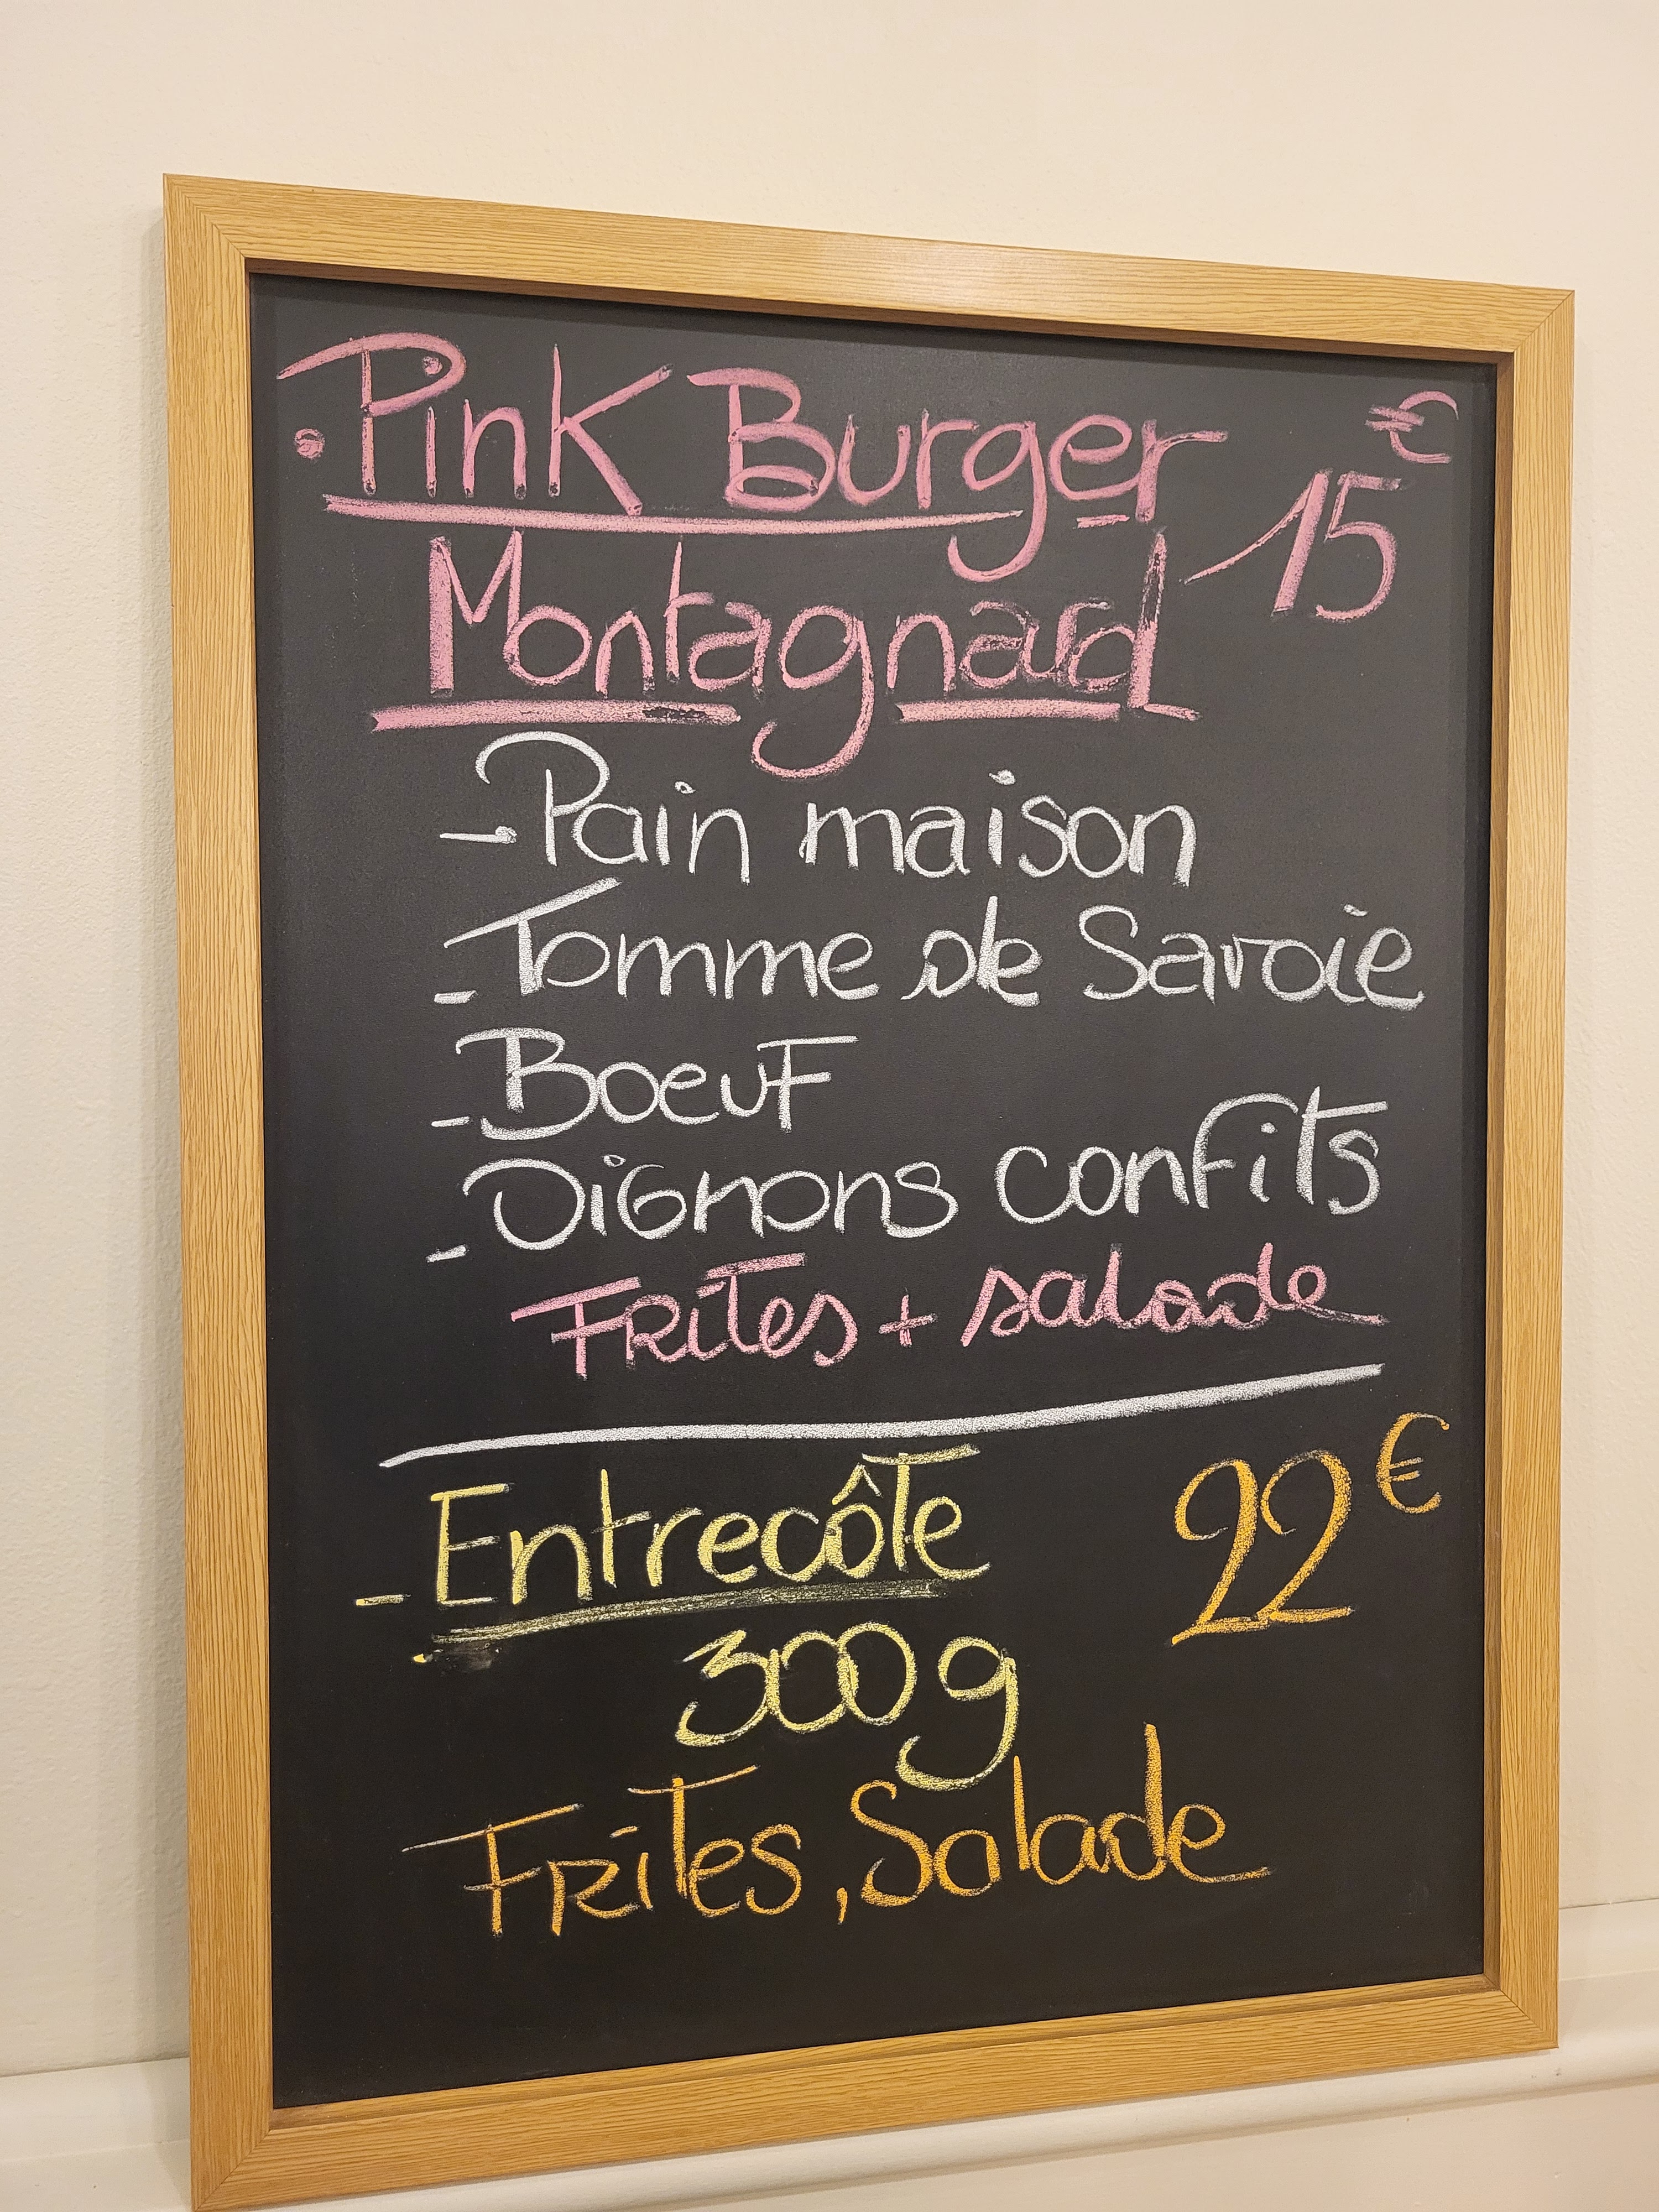 • Pink Burger 15 €
Montagnard
- Pain maison
- Tomme de Savoie
- Boeuf
- Oignons confits
Frites + salade
- Entrecôte 22 €
300 g
Frites, Salade